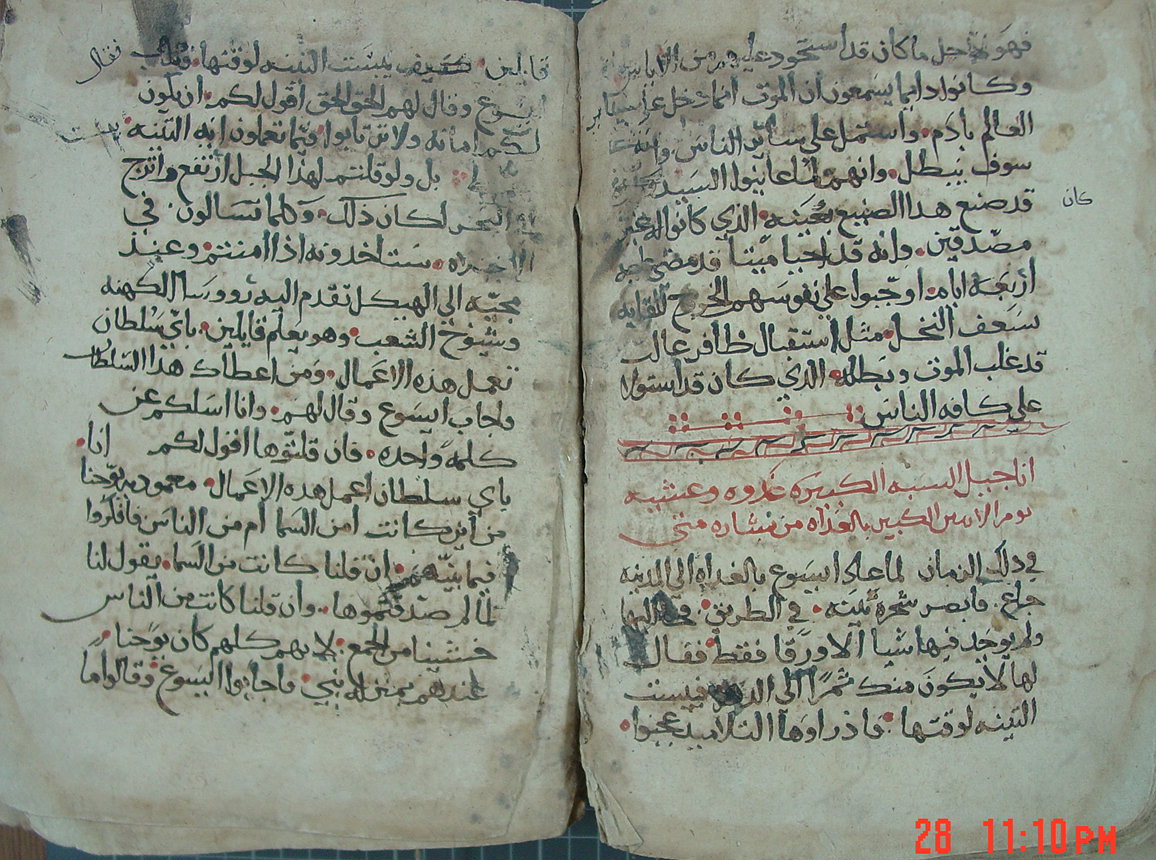 فهو لاجل ما كان قد استحود عليهم من
وكانوا دايما يسمعون ان الموت انما دخل
العالم بادم. واستمل على ساير الناس. وانه
سوف يبطل. وانهم لما عاينوا السيد
قد صنع هدا الصنيع بعينه. الذي كانوا له غير
كان
مصدقين. وانه قد احيا ميتا قد مضى له
اربعة ايام. اوجبوا على نفوسهم الخروج للقايه
بسعف النخل. مثل استقبال ظافر غالب
قد غلب الموت وبطله. الذي كان قد استولا
على كافه الناس:
اناجيل السبه الكبيره غدوه وعشيه
يوم الاتنين الكبير بالغداه من بشاره متى
في دلك الزمان لما عاد ايسوع بالغداه الى المدينه
جاع. فابصر شجره تينه. في الطريق. فجا اليها
ولم يوجد فيها شيا الا ورقا فقط فقال
لها لا يكون منك ثمرا الى الدهر فيبست
التينه لوقتها. فاذ راوها التلاميد عجبوا.
قايلين. كيف يبست التينه لوقتها. فقال
ايسوع وقال لهم الحق الحق اقول لكم. ان يكون
لكم امانه ولا ترتابوا. فما تعملون ايه التينه.
بل ولو قلتم لهدا الجبل ارتفع واتزج
في البحر لكان ذلك. وكلما تسالون في
ستاخدونه اذا امنتم. وعند
مجيه الى الهيكل تقدم اليه روورسا الكهنه
وشيوخ الشعب. وهو يعلم قايلين. باي سلطان
تعمل هده الاعمال. ومن اعطاك هدا السلطان
واجاب ايسوع وقال لهم. وانا اسلكم عن
كلمه واحده. فان قلتوها اقول لكم انا.
باي سلطان اعمل هده الاعمال. معموديه يوحنا
من اين كانت امن السما ام من الناس فافكروا
فيما بينهم. ان قلنا كانت من السما. يقول لنا
لما لم صدقتموها. وان قلنا كانت من الناس
خشينا من الجمع. لانهم كلهم كان يوحنا.
عندهم بمنزله نبي. فاجابوا اليسوع وقالوا ما
28 11:10 PM